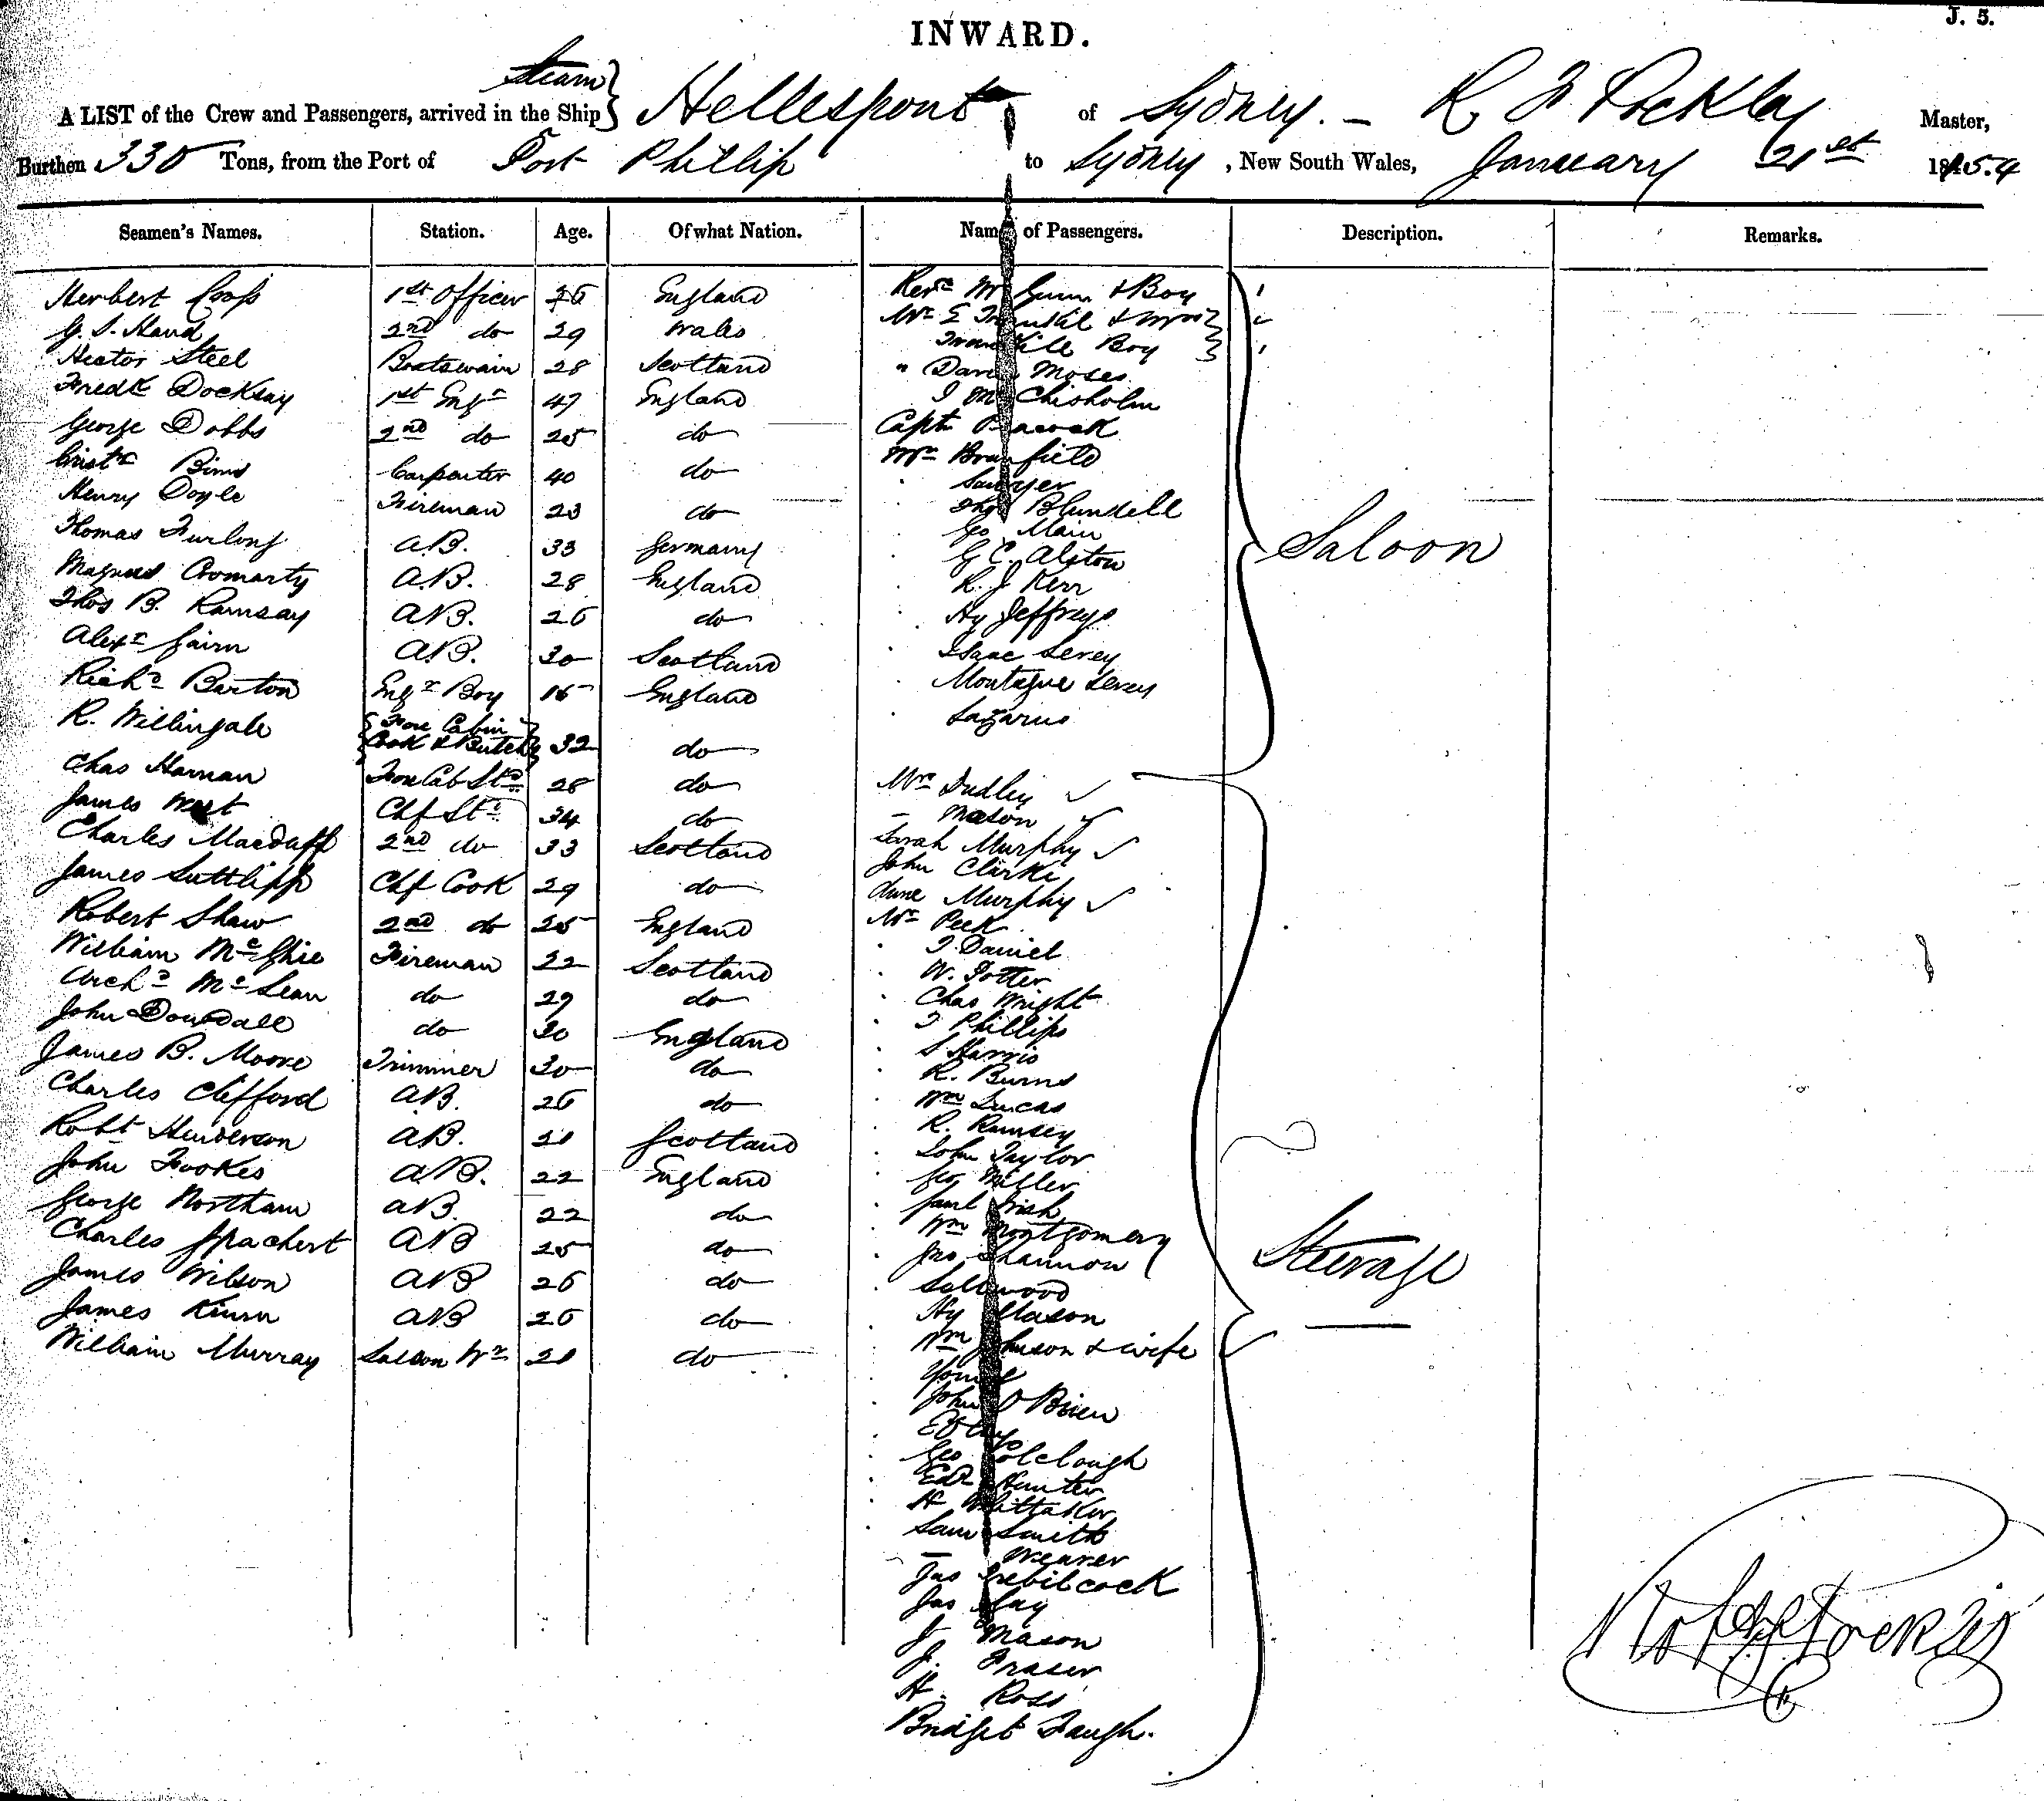 J. 5.
INWARD.
Steam
A LIST of the Crew and Passengers, arrived in the Ship } Hellespont of Sydney. - R F Pockley Master,
Burthen 330 Tons, from the Port of Port Phillip to Sydney, New South Wales, January 21st 1854
Seamen's Names. Station. Age. Of what Nation. Names of Passengers. Description. Remarks.
Herbert 1st Officer England Revd Mr Gunn & Boy
G. S. Hand 2nd do 29 Wales Mr E &
Hector Steel Boatswain 28 Scotland Boy
Fredk Docksay 1st Engr 47 England " David Moses
George Dobbs 2nd do 25 do J Mc Chisholm
Binns Carpenter 40 do Capt Peacock
Henry Doyle Fireman 23 do Mr Branfield
Thomas Furlong A.B. 33 Germany Sawyer
Magnus Cromarty A.B. 28 England Thos Blundell
Thos B. Ramsay A.B. 26 do Geo Main
Alexr Gairn A.B. 30 Scotland G C. Alston
Richd Barton Engr Boy 16 England R. J Kerr
R. Willingale { Fore Cabin Cook & Butcher } 32 do Hy Jeffreys
Chas Harnan Fore Cab Std 28 do Isaac Levey
James West Chf Std 34 do Montague Levey
Charles Macduff 2nd do 33 Scotland Lazarus
James Suttliff Chf Cook 29 do
Robert Shaw 2nd do 25 England
William McGhie Fireman 22 Scotland
Archd McLean do 29 do
John Dowdall do 30 England
James B. Moore Trimmer 30 do
Charles Clifford A.B. 26 do
Robt Henderson A.B. 21 Scotland
John Fookes A.B. 22 England
George Northam A.B. 22 do
Charles Spachert AB 25 do
James Wilson AB 26 do
James AB 26 do
William Murray Saloon Wr 21 do
Saloon
Mrs Dudley
- Mason
Sarah Murphy
John Clarke
Anne Murphy
Mr Peck
T. Daniel
W. Potter
Chas Wright
T Phillips
S Harris
R. Burns
Wm Lucas
R. Ramsey
John Taylor
Geo Miller
Saml Irish
Wm Montgomery
Jno Shannon
Sallwood
Hy Mason
Wm Johnson & wife
Young
John O Brien
Geo Colclough
Edd Hunter
H Whittaker
Sam Smith
- Weaver
Jas Trebilcock
Jas May
J Mason
J. Fraser
H. Ross
Bridget Faugh.
Steerage
Robt F Pockley